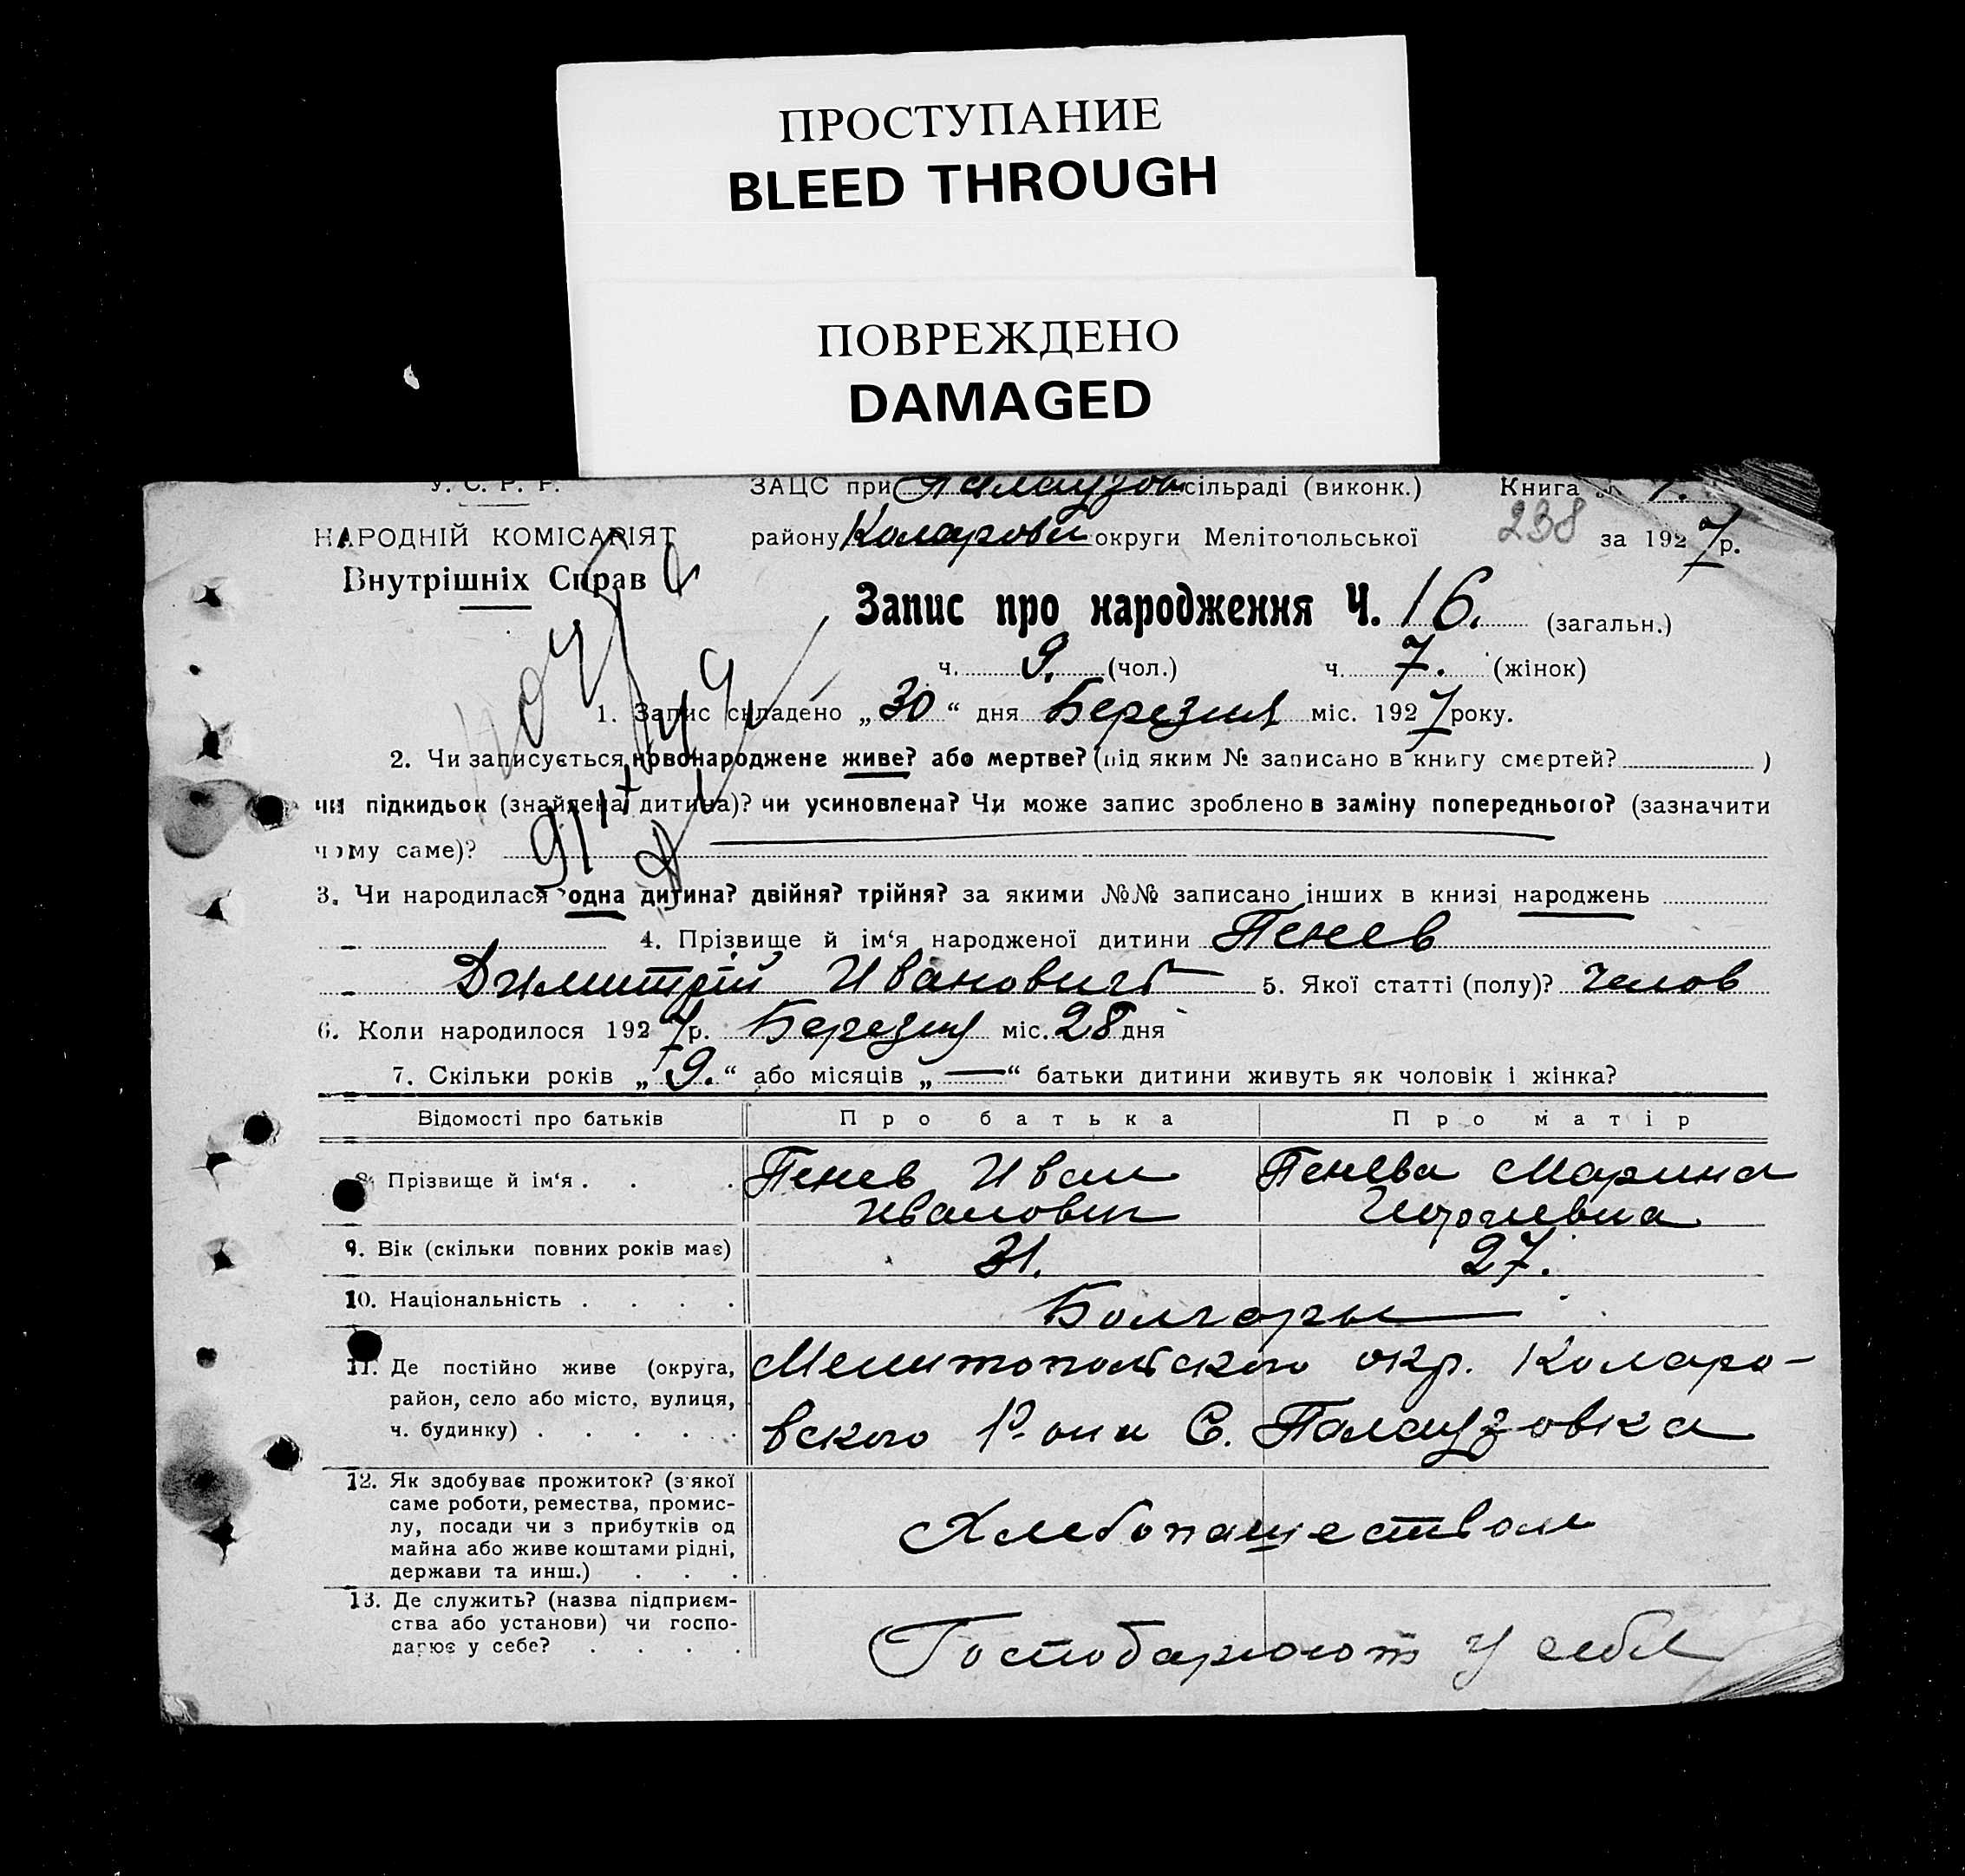 ПРОСТУПАНИЕ
BLEED THROUGH
ПОВРЕЖДЕНО
DAMAGED
У. С. Р. Р. ЗАЦС при Палаузов сільраді (виконк.) Книга № 1.
НАРОДНІЙ КОМІСАРІЯТ району Коларовск округи Мелітопольської 238 за 1927 р.
Внутрішніх Справ
Запис про народження Ч. 16. (загальн.)
ч. 9. (чол.) ч. 7. (жінок)
1. Запис складено „30“ дня Березня міс. 1927 року.
2. Чи записується новонароджене живе? або мертве? (під яким № записано в книгу смертей? )
чи підкидьок (знайдена дитина)? чи усиновлена? Чи може запис зроблено в заміну попереднього? (зазначити
чому саме)?
3. Чи народилася одна дитина? двійня? трійня? за якими №№ записано інших в книзі народжень
4. Прізвище й ім‘я народженої дитини Пенев
Димитрій Иванович 5. Якої статті (полу)? челов
6. Коли народилося 1927 р. Березня міс. 28 дня
7. Скільки років „9.“ або місяців „—“ батьки дитини живуть як чоловік і жінка?
Відомості про батьків Про батька Про матір
8. Прізвище й ім‘я . . . Пенев Иван Пенева Марина
Иванович Георгиевна
9. Вік (скільки повних років має) 31. 27.
10. Національність . . . . Болгары
11. Де постійно живе (округа, Мелитопольского окр. Коларо-
район, село або місто, вулиця,
ч. будинку) . . . . . . вского Р-они С. Палаузовка
12. Як здобуває прожиток? (з якої
саме роботи, ремества, промис-
лу, посади чи з прибутків од Хлебопашеством
майна або живе коштами рідні,
держави та инш.) . . .
13. Де служить? (назва підприєм-
ства або установи) чи госпо-
дарює у себе? . . . . Господарюют у себя